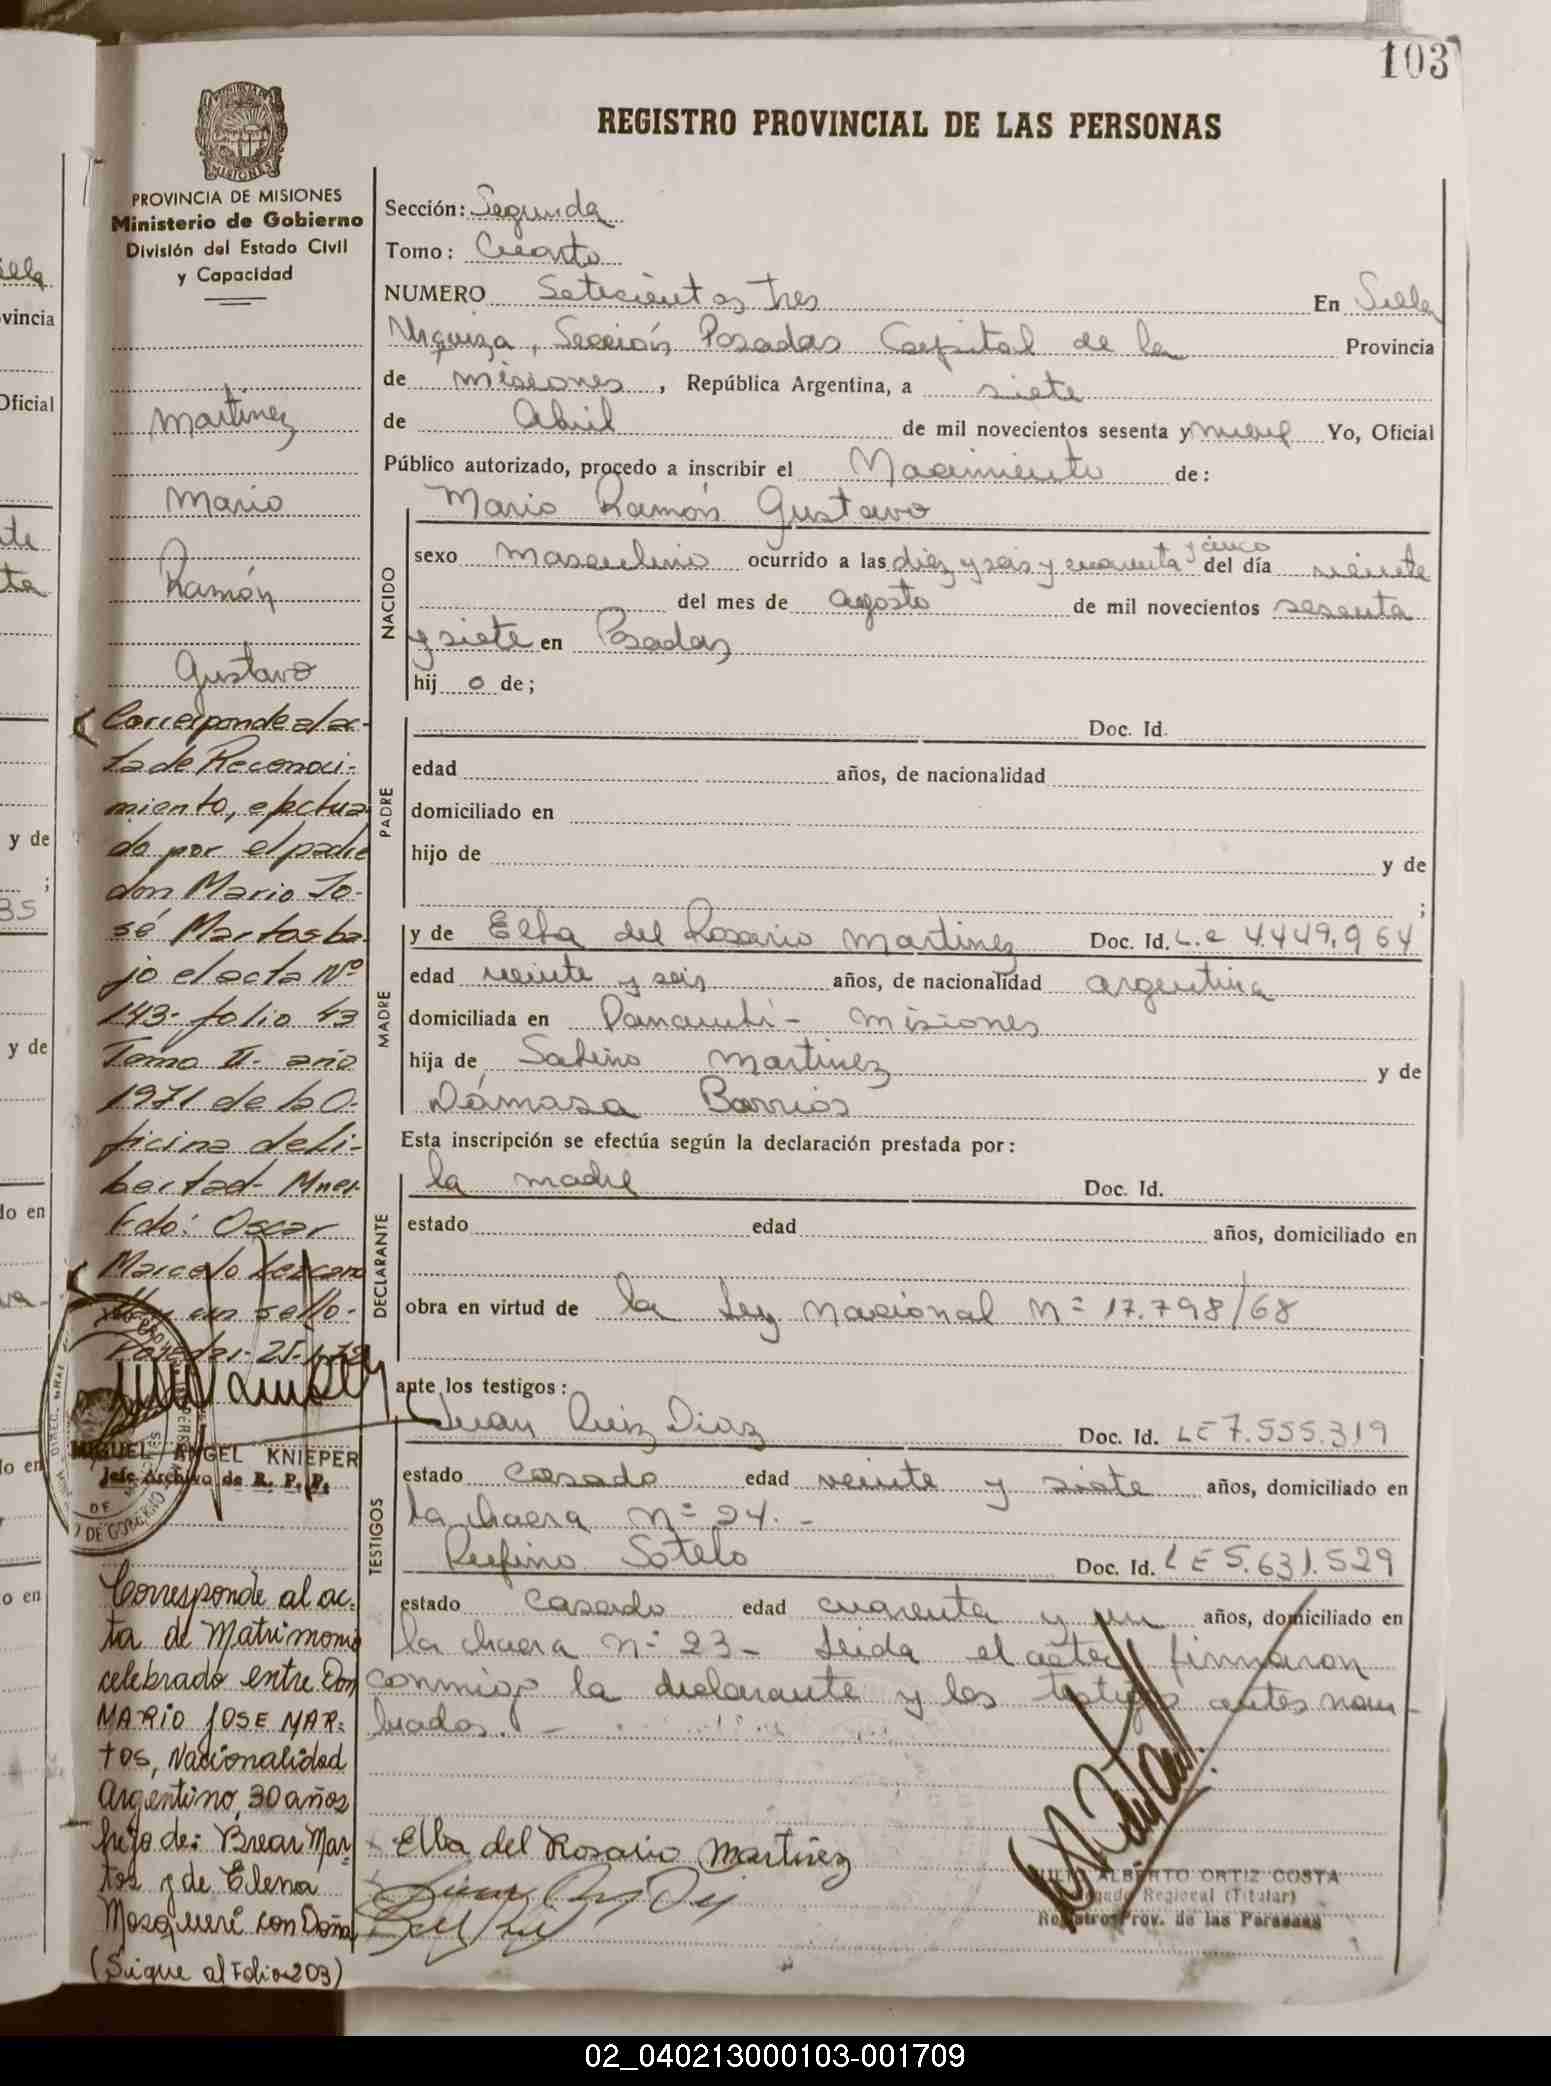 103
REGISTRO PROVINCIAL DE LAS PERSONAS
MISIONES
PROVINCIA DE MISIONES
Ministerio de Gobierno
División del Estado Civil
y Capacidad
Martinez
Mario
Ramón
Gustavo
Corresponde al ac-
ta de Reconoci-
miento, efectua
do por el padre
don Mario Jo-
sé Martos ba
jo el acta Nº
143- folio 43
Tomo II- año
1971 de la O-
ficina de Li-
bertad- Mnes.
Fdo: Oscar
Marcelo Lezcano
Hay un sello-
Posadas- 25-
MIGUEL ANGEL KNIEPER
Jefe Archivo de R. P. P.
Corresponde al ac-
ta de Matrimonio
celebrado entre Don
MARIO JOSE MAR-
tos, Nacionalidad
Argentino, 30 años
hijo de: Brear Mar-
tos y de Elena
Mosqueré con Doña
(Sigue al Folio 203)
Sección: Segunda
Tomo: Cuarto
NUMERO Setecientos tres En Villa
Urquiza, Sección Posadas Capital de la Provincia
de Misiones, República Argentina, a siete
de Abril de mil novecientos sesenta y nueve Yo, Oficial
Público autorizado, procedo a inscribir el Nacimiento de:
NACIDO
Mario Ramón Gustavo
sexo masculino ocurrido a las diez y seis y cuarenta y cinco del día veinte
del mes de agosto de mil novecientos sesenta
y siete en Posadas
hij o de;
PADRE
Doc. Id.
edad años, de nacionalidad
domiciliado en
hijo de y de
;
MADRE
y de Elba del Rosario Martinez Doc. Id. L.C 4.449.964
edad veinte y seis años, de nacionalidad argentina
domiciliada en Panambí - Misiones
hija de Sabino Martinez y de
Dámasa Barrios
Esta inscripción se efectúa según la declaración prestada por:
DECLARANTE
la madre Doc. Id.
estado edad años, domiciliado en
obra en virtud de la Ley Nacional Nº 17.798/68
ante los testigos:
TESTIGOS
Juan Ruiz Diaz Doc. Id. LE 7.555.319
estado casado edad veinte y siete años, domiciliado en
la chacra Nº 24. -
Rufino Sotelo Doc. Id. LE 5.631.529
estado casado edad cuarenta y un años, domiciliado en
la chacra Nº 23 - Leida el acta, firmaron
conmigo la declarante y los testigos antes nom-
brados. -
Elba del Rosario Martinez
JULIO ALBERTO ORTIZ COSTA
Delegado Regional (Titular)
Registro Prov. de las Personas
02_040213000103-001709